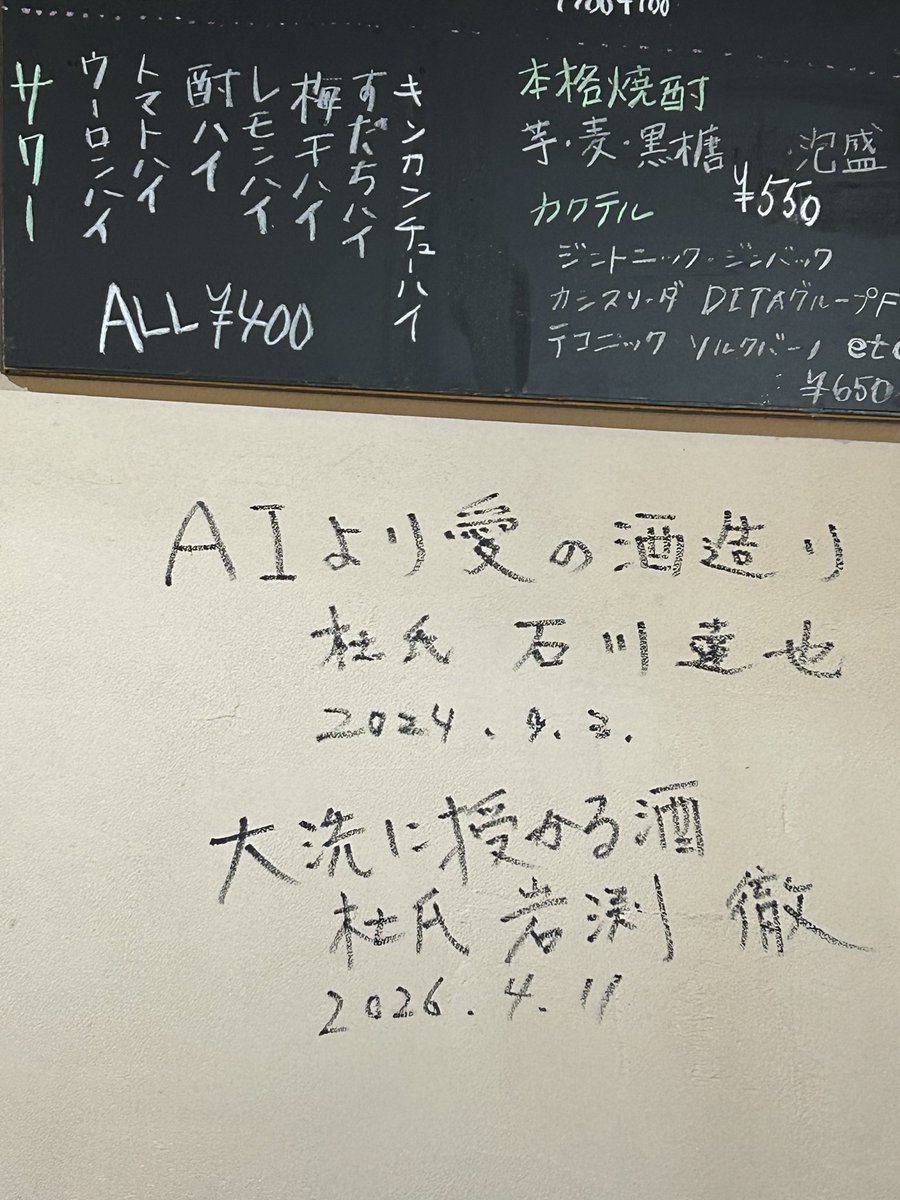 本格焼酎
芋・麦・黒糖 泡盛
¥550
カクテル
ジントニック・ジンバック
カシスソーダ DITAグループF
テコニック ソルクバーノ etc
¥650
キンカンチューハイ
すだちハイ
梅干ハイ
レモンハイ
酎ハイ
トマトハイ
ウーロンハイ
サワー
ALL ¥400
AIより愛の酒造り
杜氏 石川達也
2024.9.2.
大洗に授かる酒
杜氏 岩渕 徹
2026.4.11